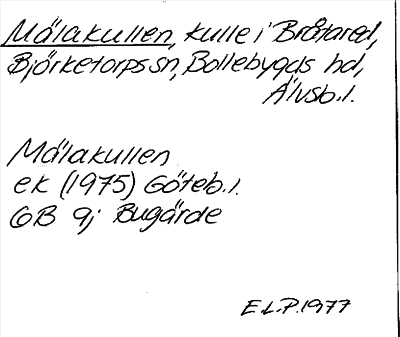 Mölakullen, kulle i Bråtared,
Björketorps sn, Bollebygds hd,
Älvsb. l.
Mölakullen
ek (1975) Göteb. l.
6B 9j Bugärde
E.L.P. 1977